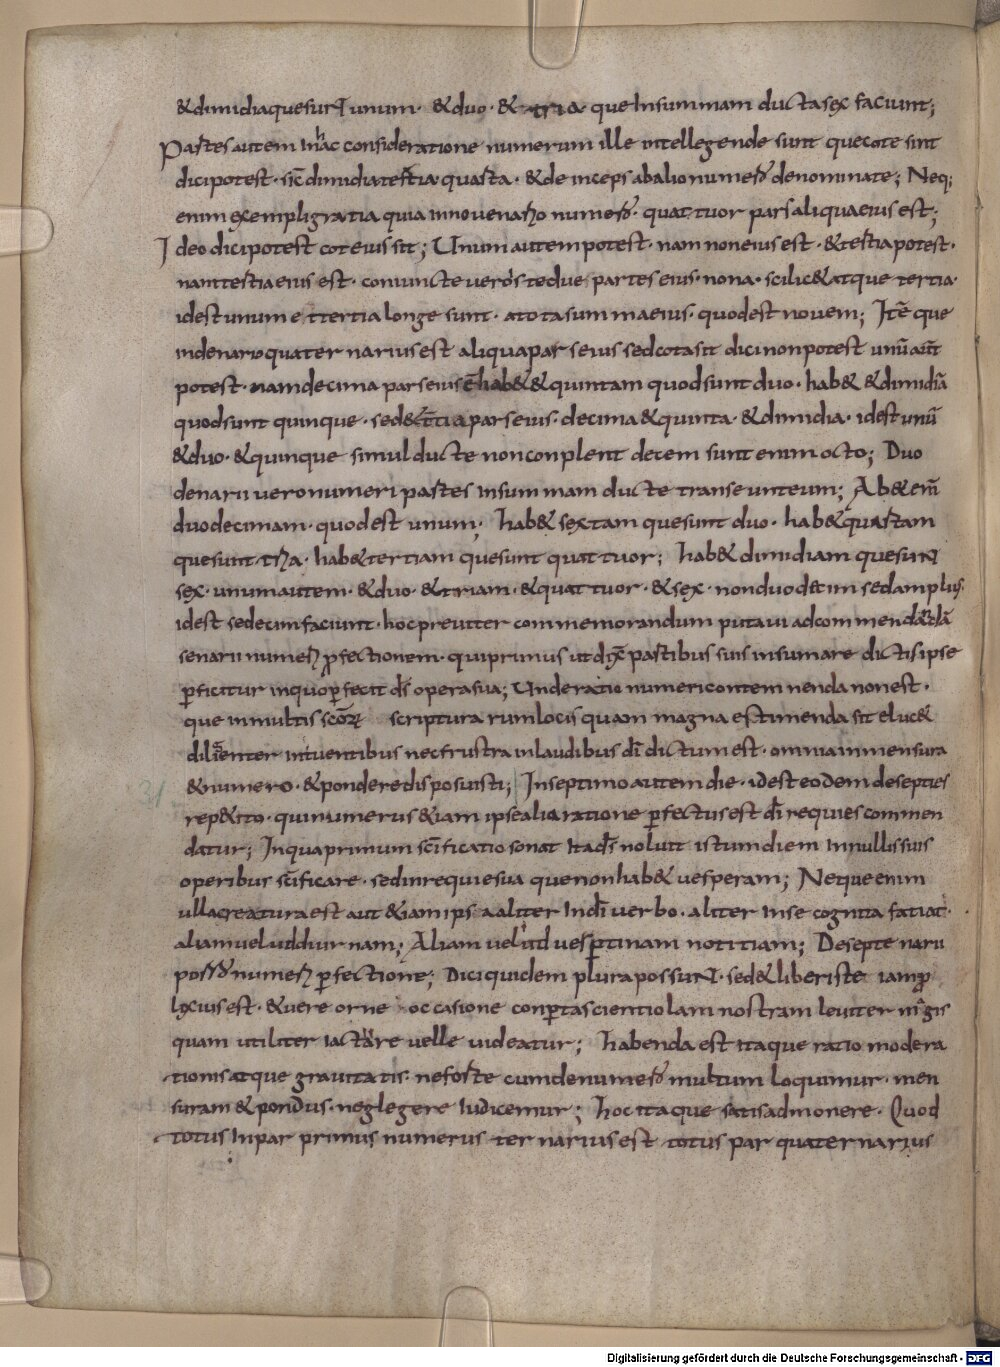 &dimidia que sunt unum · & duo · & tria que Insummam ducta sex faciunt;
Partes autem in hac consideratione numerum ille intellegende sunt que cote sint
dici potest · sic dimidia tertia quarta · & de inceps abalio numero denominate; Neq;
enim exempli gratia quia in novenario numero · quattuor pars aliqua eius est;
Ideo dici potest cot eius sit; Unum autem potest · nam non eius est · & tertia potest ·
nam tertia eius est · coniuncte vero iste due partes eius · nona · scilic& atque tertia ·
id est unum et tertia longe sunt · a tota summa eius · quod est novem; Itē que
in denario quaternarius est aliqua pars eius sed cota sit dici non potest unū aūt
potest · nam decima pars eius ē hab& & quintam quod sunt duo · hab& & dimidiā
quod sunt quinque · sed & t̄tia pars eius · decima & quinta · & dimidia · id est unū
& duo · & quinque simul ducte non conplent decem sunt enim octo; Duo
denarii vero numeri partes in summam ducte transeunt eum; Ab& eni̅
duodecimam · quod est unum; hab& sextam que sunt duo · hab& quartam
que sunt tria · hab& tertiam que sunt quattuor; hab& dimidiam que sunt
sex · unum autem · & duo · & triam · & quattuor · & sex · non duodecim sed amplius
id est sedecim faciunt · hoc breviter commemorandum putavi ad commendandā
senarii numeri p̄fectionem · qui primus ut dix̄ partibus suis in sumare dictis ipse
p̄ficitur in quo p̄fecit ds̄ opera sua; Unde ratio numeri contemnenda non est ·
que in multis scōr̄ scripturarum locis quam magna estimenda sit eluc&
diligenter intuentibus nec frustra in laudibus dī dictum est · omnia in mensura
& numero · & pondere disposuisti; In septimo autem die · id est eodem de septies
rep&ito · qui numerus &iam ipse alia ratione p̄fectus est dī requies commen
datur; In qua primum sc̄ificatio sonat Ita ds̄ noluit istum diem In nullis suis
operibus sc̄ificare · sed in requie sua que non hab& vesperam; Neque enim
ulla creatura est aut &iam ipsa aliter In dī verbo · aliter In se cognita faciat ·
aliam velud diurnam; Aliam velud vesp̄tinam notitiam; De septenarii
porro numeri p̄fectione; Dici quidem plura possunt · sed & liber iste iam p̄
lixius est · & vereor ne occasione conp̄ta scientiolam nostram leviter magis
quam utiliter iactare velle videatur; habenda est itaque ratio modera
tionis atque gravitatis · ne forte cum de numero multum loquimur · men
suram & pondus · neglegere Iudicemur; hoc itaque satis admonere · Quod
totus Inpar primus numerus ternarius est totus par quaternarius
31
Digitalisierung gefördert durch die Deutsche Forschungsgemeinschaft - DFG